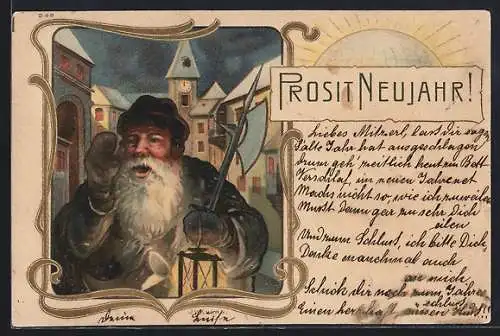 PROSIT NEUJAHR!
Liebes Mitzerl, lass dir sagen
s'alte Jahr hat ausgeschlagen
drum geh' zeitlich heut ins Bett
Verschlaf, im neuen Jahre net
Mach's nicht so, wie ich zuweilen
Musst dann gar zu sehr Dich
eilen
Und nun Schluss, ich bitte Dich,
Denke manchmal auch
an mich.
Schick dir noch zum Jahres
schluss
Einen
Deine Luise